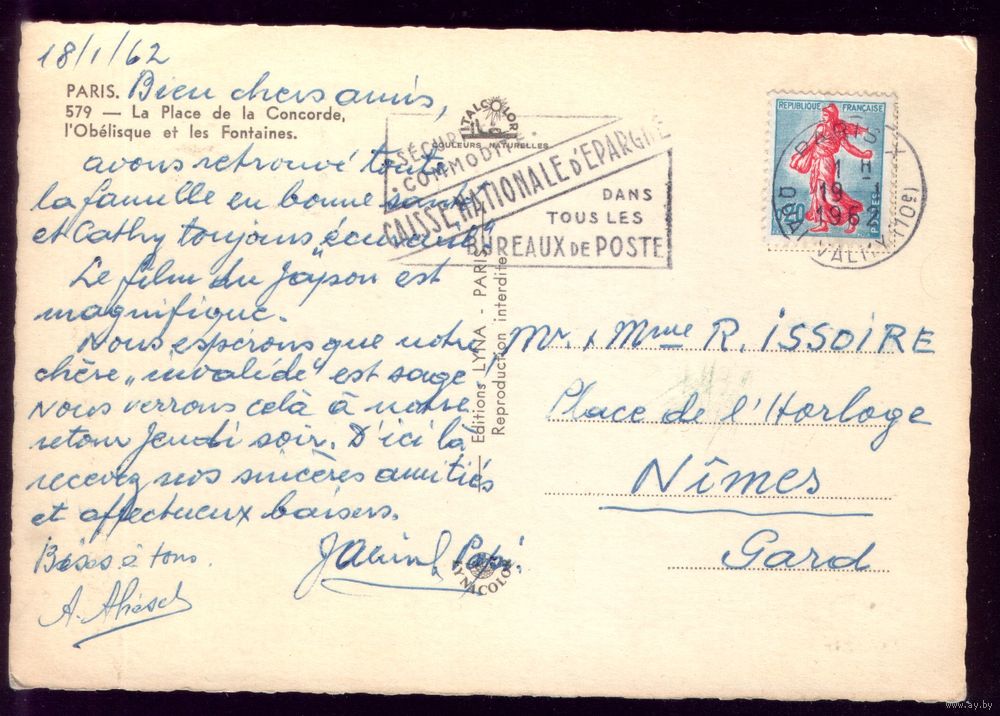 18/1/62
PARIS. Bien chers amis,
579 — La Place de la Concorde,
l'Obélisque et les Fontaines.
avons retrouvé toute
la famille en bonne santé
et Cathy toujours
Le film du Japon est
magnifique.
Nous espérons que notre
chère „invalide" est sage
Nous verrons celà à notre
retour Jeudi soir. D'ici là
recevez nos sincères amitiés
et affectueux baisers.
Bises à tous.
ITALCOLOR
COULEURS NATURELLES
SÉCURITÉ
COMMODITÉ
CAISSE NATIONALE D'ÉPARGNE
DANS
TOUS LES
BUREAUX DE POSTE
— Editions LYNA - PARIS
Reproduction interdite
LYNACOLOR
REPUBLIQUE FRANÇAISE
POSTES
PARIS
19-1
1962
QUAI VALMY (10e)
Mr. & Mme R. ISSOIRE
Place de l'Horloge
Nîmes
Gard
www.ay.by